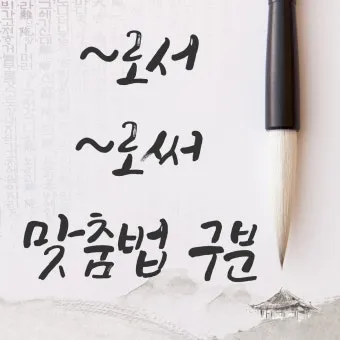 ~로서
~로써
맞춤법 구분